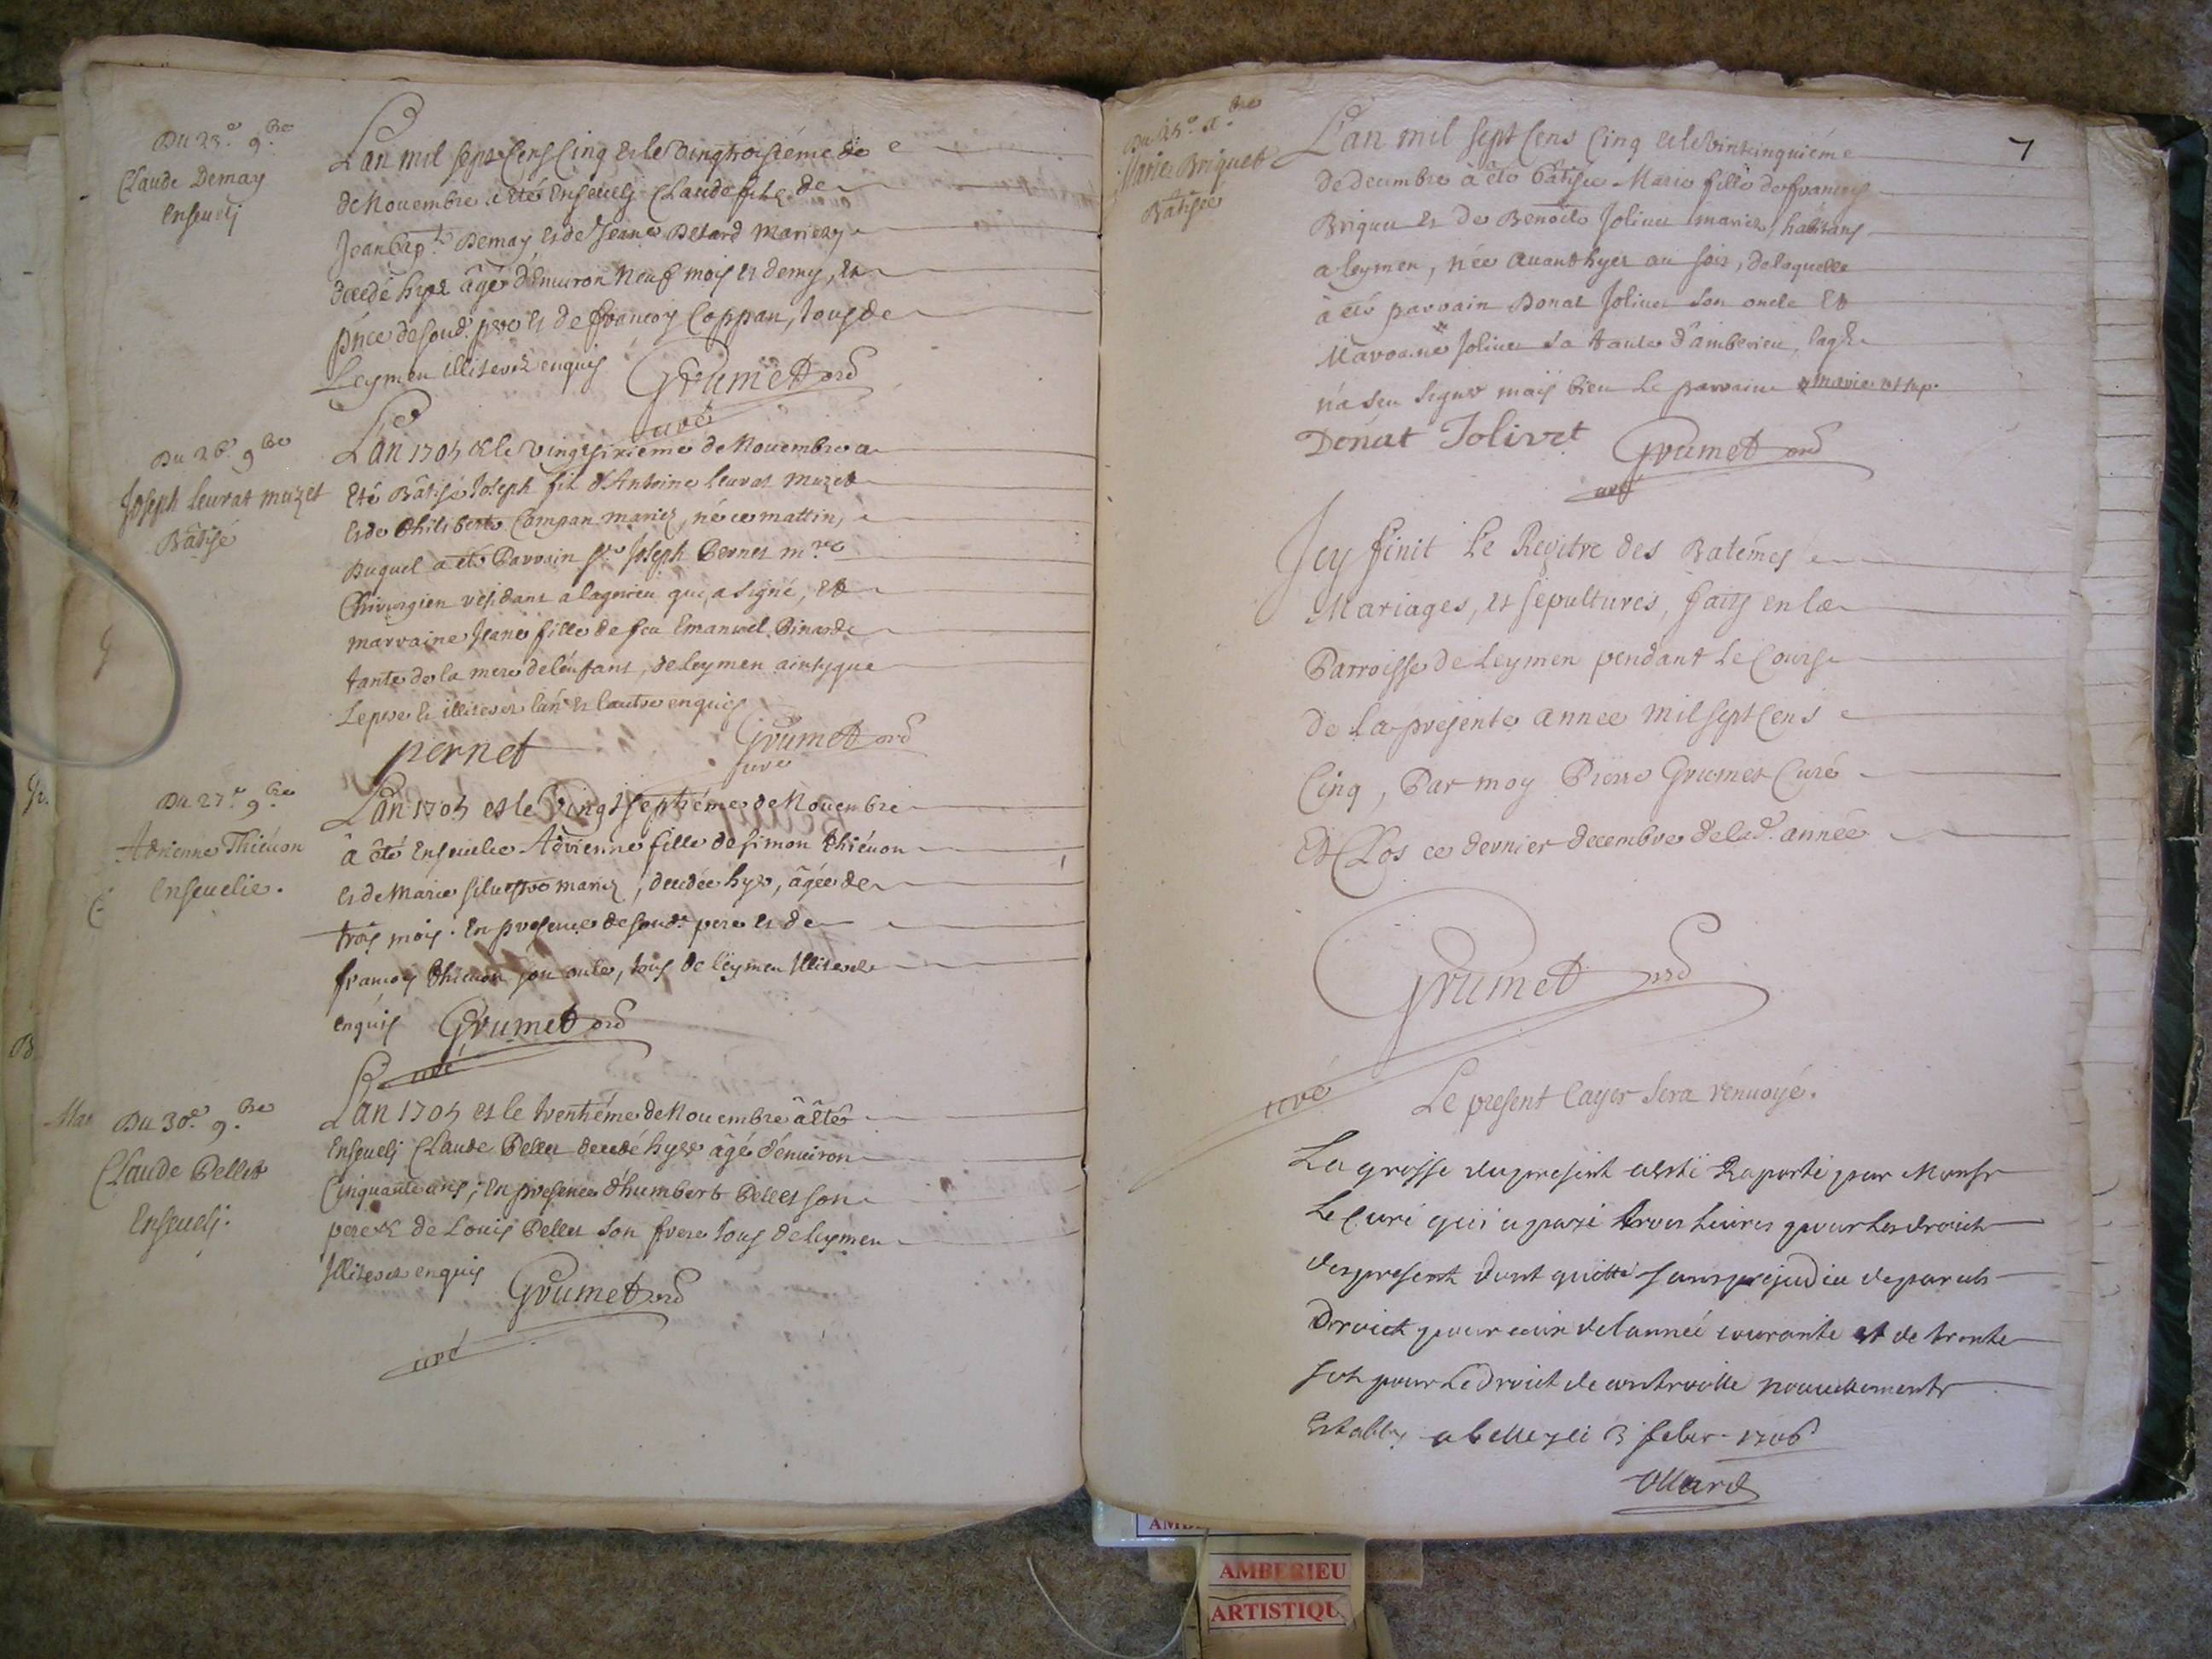 Du 23.e 9.bre
Claude Demay
Ensevelj
L'an mil sept Cens Cinq et le Vingtroisiéme de
de Novembre a été Ensevelj Claude fils de
Jean Bap.te Demay et de Jeane Betard Mariez
decedé hyer âgé d'Environ Neuf mois et demy, En
pñce de soud. pere et de francoy Coppan, tous de
Leymen illiterez enquis Grumet
curé
Du 26.e 9.bre
Joseph leurat muzet
Bâtisé
L'an 1705 et le Vingtsixieme de Novembre a
Eté Bâtisé Joseph fil d'Antoine leurat muzet
et de Philiberte Compan mariez, né ce mattin,
Duquel a eté Parrain Sr. Joseph Pernet m.re
Chirurgien residant a lagnieu qui a signé, Et
marraine Jeane fille de feu Emanuel Pinard
tante de la mere de l'enfant, de leymen ainsy que
Le pere et illiterez l'un et l'autre enquis
pernet Grumet
curé
Du 27.e 9.bre
Adrienne Thiévon
Ensevelie.
L'an 1705 et le Vingt septiéme de Novembre
â êté Ensevelie Adrienne fille de simon thiévon
et de Marie silvestre mariez, decedée hyer, âgée de
trois mois. En presence de soud. pere et de
francoy thievon son oncle, tous de leymen illiterez
enquis Grumet
curé
Du 30.e 9.bre
Claude Pellet
Ensevelj.
L'an 1705 et le trentiéme de Novembre â êté
Ensevelj Claude Pellet decedé hyer âgé d'environ
Cinquante ans; En presence d'humbert Pellet son
pere et de Louis Pellet son frere tous de leymen
Illiterez enquis Grumet
curé
7
Marie Briquet
Bâtisée
L'an mil sept Cens Cinq et le Vintcinquiéme
de decembre à êté Bâtisée Marie fille de francoy
Briquet et de Benoite Jolivet mariez, habitans
a leymen, née avant hyer au soir, de laquelle
à eté parrain Donat Jolivet son oncle Et
Marraine Jolivet sa tante d'amberieu, laq.le
n'a seu signer mais bien le parrain
Donat Jolivet Grumet
curé
Icy finit Le Regitre des Batémes
Mariages, et sepultures, faits en la
Parroisse de Leymen pendant le Cours
de la presente année Mil sept Cens
Cinq, Par moy Pierre Grumet Curé
Et Clos ce dernier decembre de lad. année
Grumet
curé
Le present Cayer sera renvoyé.
La grosse du present a esté Raporté par Monsr
Le Curé qui a payé trois livres pour les droicts
du present dont quitte sans prejudice de pareils
Droict pour ceux de l'année courante et de trente
sols pour le Droict de controolle nouvellement
Establi a belley le 3 febvr. 1706